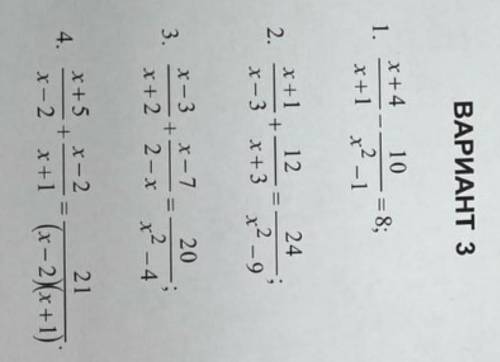 ВАРИАНТ 3
1. \frac{x+4}{x+1} - \frac{10}{x^2-1} = 8;
2. \frac{x+1}{x-3} + \frac{12}{x+3} = \frac{24}{x^2-9};
3. \frac{x-3}{x+2} + \frac{x-7}{2-x} = \frac{20}{x^2-4};
4. \frac{x+5}{x-2} + \frac{x-2}{x+1} = \frac{21}{(x-2)(x+1)}.